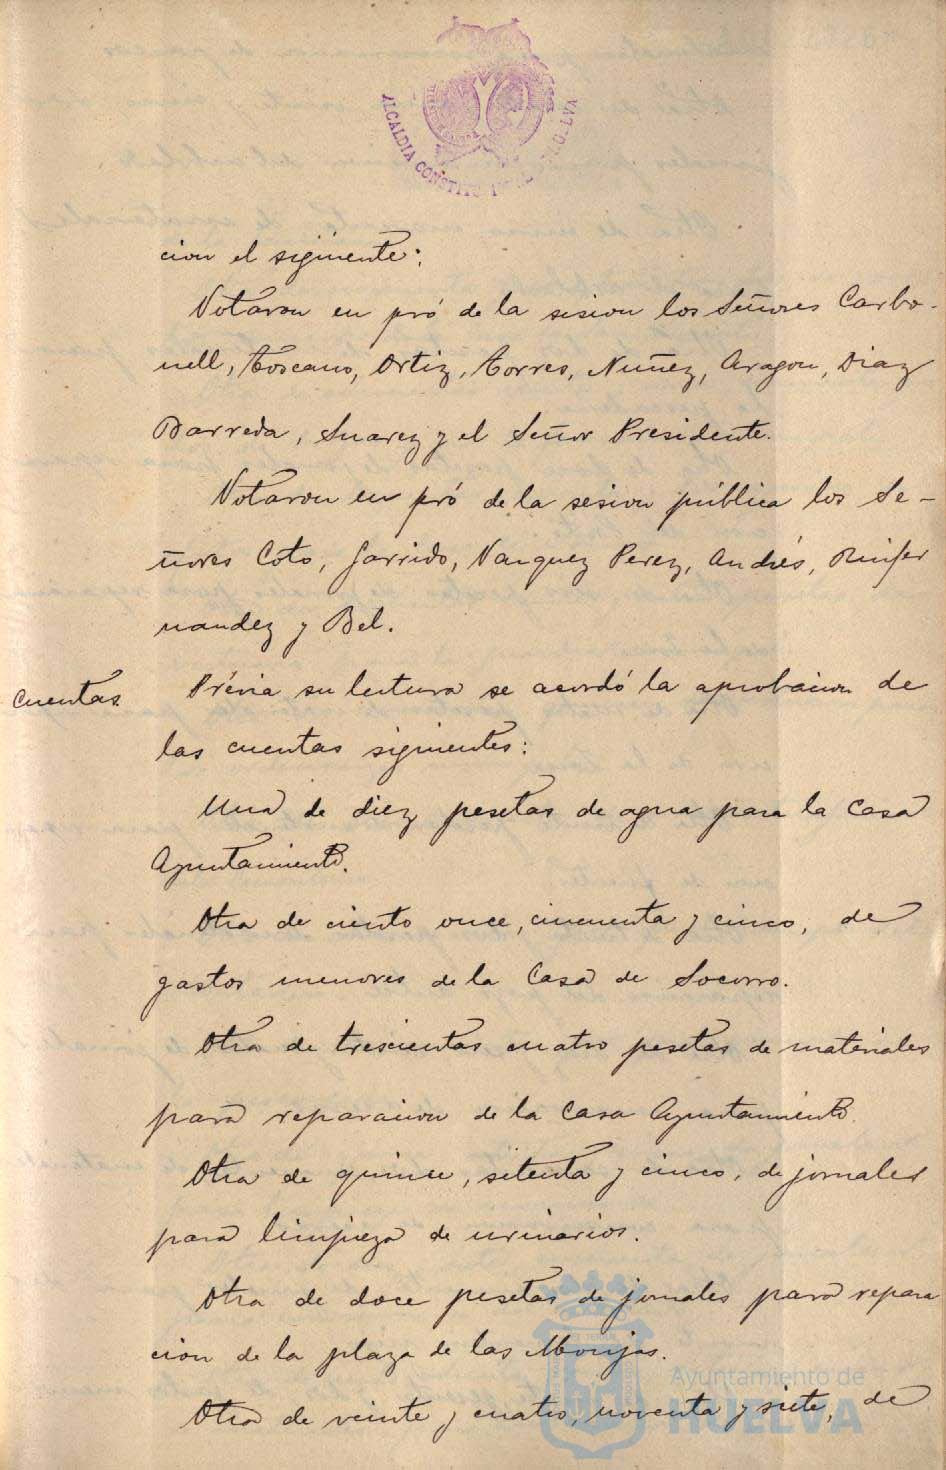 ALCALDIA CONSTIT
cion el sigüiente:
Votaron en pró de la sesion los Señores Carbo-
nell, Toscano, Ortiz, Torres, Nuñez, Aragon, Diaz
Barreda, Suarez y el Señor Presidente.
Votaron en pró de la sesion pública los Se-
ñores Coto, Garrido, Vazquez Perez, Andrés, Quifer
nandez y Bel.
Cuentas
Prévia su lectura se acordó la aprobacion de
las cuentas siguientes:
Una de diez pesetas de agua para la Casa
Ayuntamiento.
Otra de ciento once, cincuenta y cinco, de
gastos menores de la Casa de Socorro.
Otra de trescientas cuatro pesetas de materiales
para reparacion de la Casa Ayuntamiento.
Otra de quince, setenta y cinco, de jornales
para limpieza de urinarios.
Otra de doce pesetas de jornales para repara
cion de la plaza de las Monjas.
Otra de veinte y cuatro, noventa y siete, de
Ayuntamiento de
HUELVA